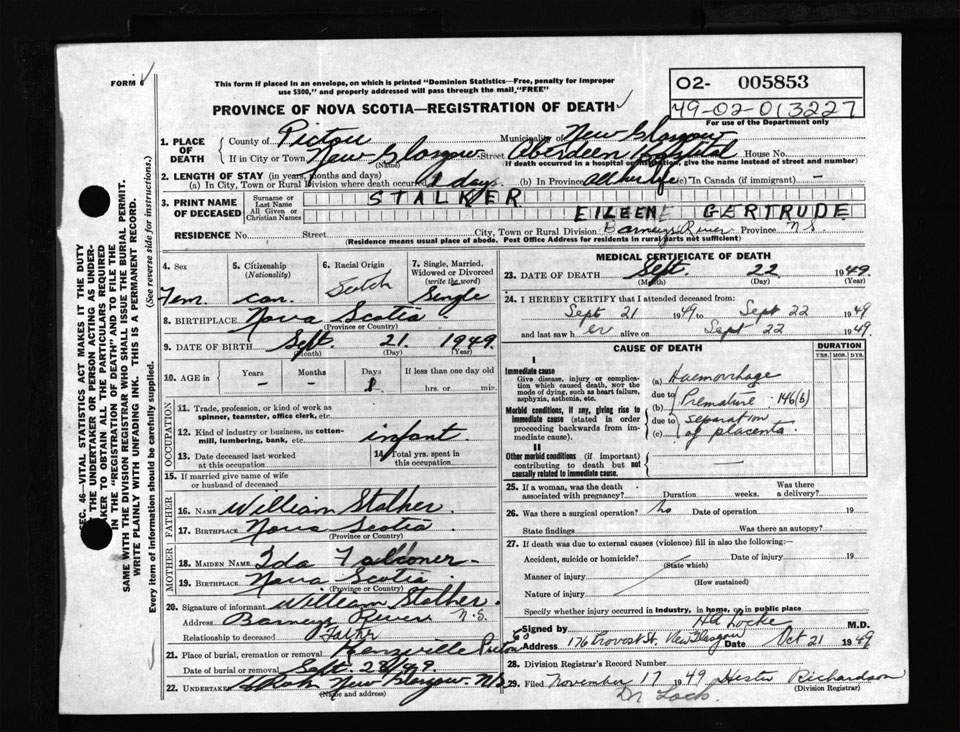 FORM
This form if placed in an envelope, on which is printed "Dominion Statistics—Free, penalty for improper
use $300," and properly addressed will pass through the mail "FREE"
PROVINCE OF NOVA SCOTIA—REGISTRATION OF DEATH
O2- 005853
49-02-013227
For use of the Department only
SEC. 46—VITAL STATISTICS ACT MAKES IT THE DUTY
OF THE UNDERTAKER OR PERSON ACTING AS UNDER-
TAKER TO OBTAIN ALL THE PARTICULARS REQUIRED
IN THE "REGISTRATION OF DEATH" AND TO FILE THE
SAME WITH THE DIVISION REGISTRAR WHO SHALL ISSUE THE BURIAL PERMIT.
WRITE PLAINLY WITH UNFADING INK. THIS IS A PERMANENT RECORD.
Every item of information should be carefully supplied. (See reverse side for instructions.)
1. PLACE OF DEATH
County of Pictou Municipality of New Glasgow
If in City or Town New Glasgow Street Aberdeen Hospital House No.
(Name) If death occurred in a hospital or institution, give the name instead of street and number)
2. LENGTH OF STAY (in years, months and days)
(a) In City, Town or Rural Division where death occurred 1 days. (b) In Province All her life (c) In Canada (if immigrant) —
3. PRINT NAME OF DECEASED
Surname or Last Name STALKER
All Given or Christian Names EILEENE GERTRUDE
RESIDENCE No. Street City, Town or Rural Division Barneys River Province N.S.
(Residence means usual place of abode. Post Office Address for residents in rural parts not sufficient)
4. Sex Fem.
5. Citizenship (Nationality) Can.
6. Racial Origin Scotch
7. Single, Married, Widowed or Divorced (write the word) Single
8. BIRTHPLACE Nova Scotia
(Province or Country)
9. DATE OF BIRTH Sept. 21. 1949
(Month) (Day) (Year)
10. AGE in Years — Months — Days 1 If less than one day old hrs. or min.
OCCUPATION
11. Trade, profession, or kind of work as spinner, teamster, office clerk, etc.
12. Kind of industry or business, as cotton-mill, lumbering, bank, etc. infant
13. Date deceased last worked at this occupation
14. Total yrs. spent in this occupation
15. If married give name of wife or husband of deceased
FATHER
16. NAME William Stalker
17. BIRTHPLACE Nova Scotia
(Province or Country)
MOTHER
18. MAIDEN NAME Ida Falconer
19. BIRTHPLACE Nova Scotia
(Province or Country)
20. Signature of informant William Stalker.
Address Barneys River N.S.
Relationship to deceased Father
21. Place of burial, cremation or removal Kenzville Pictou
Date of burial or removal Sept. 23/49.
22. Undertaker New Glasgow N.S.
(Name and address)
MEDICAL CERTIFICATE OF DEATH
23. DATE OF DEATH Sept. 22 1949
(Month) (Day) (Year)
24. I HEREBY CERTIFY that I attended deceased from:
Sept 21 1949 to Sept 22 1949
and last saw her alive on Sept 22 1949.
CAUSE OF DEATH
DURATION
YRS. MOS. DYS.
I
Immediate cause
Give disease, injury or complication which caused death, NOT the mode of dying, such as heart failure, asphyxia, asthenia, etc.
(a) Haemorrhage
due to
Morbid conditions, if any, giving rise to immediate cause (stated in order proceeding backwards from immediate cause).
(b) Premature 146(b)
due to
(c) separation of placenta.
II
Other morbid conditions (if important) contributing to death but not causally related to immediate cause.
—
25. If a woman, was the death associated with pregnancy? Duration weeks. Was there a delivery?
26. Was there a surgical operation? no Date of operation 19
State findings Was there an autopsy?
27. If death was due to external causes (violence) fill in also the following:
Accident, suicide or homicide? Date of injury 19
(State which)
Manner of injury
(How sustained)
Nature of injury
Specify whether injury occurred in Industry, in home, or in public place
Signed by HA Locke M.D.
Address 176 Provost St. New Glasgow Date Oct 21 1949
28. Division Registrar's Record Number
29. Filed November 17 1949 Hester Richardson
(Division Registrar)
Dr Lock